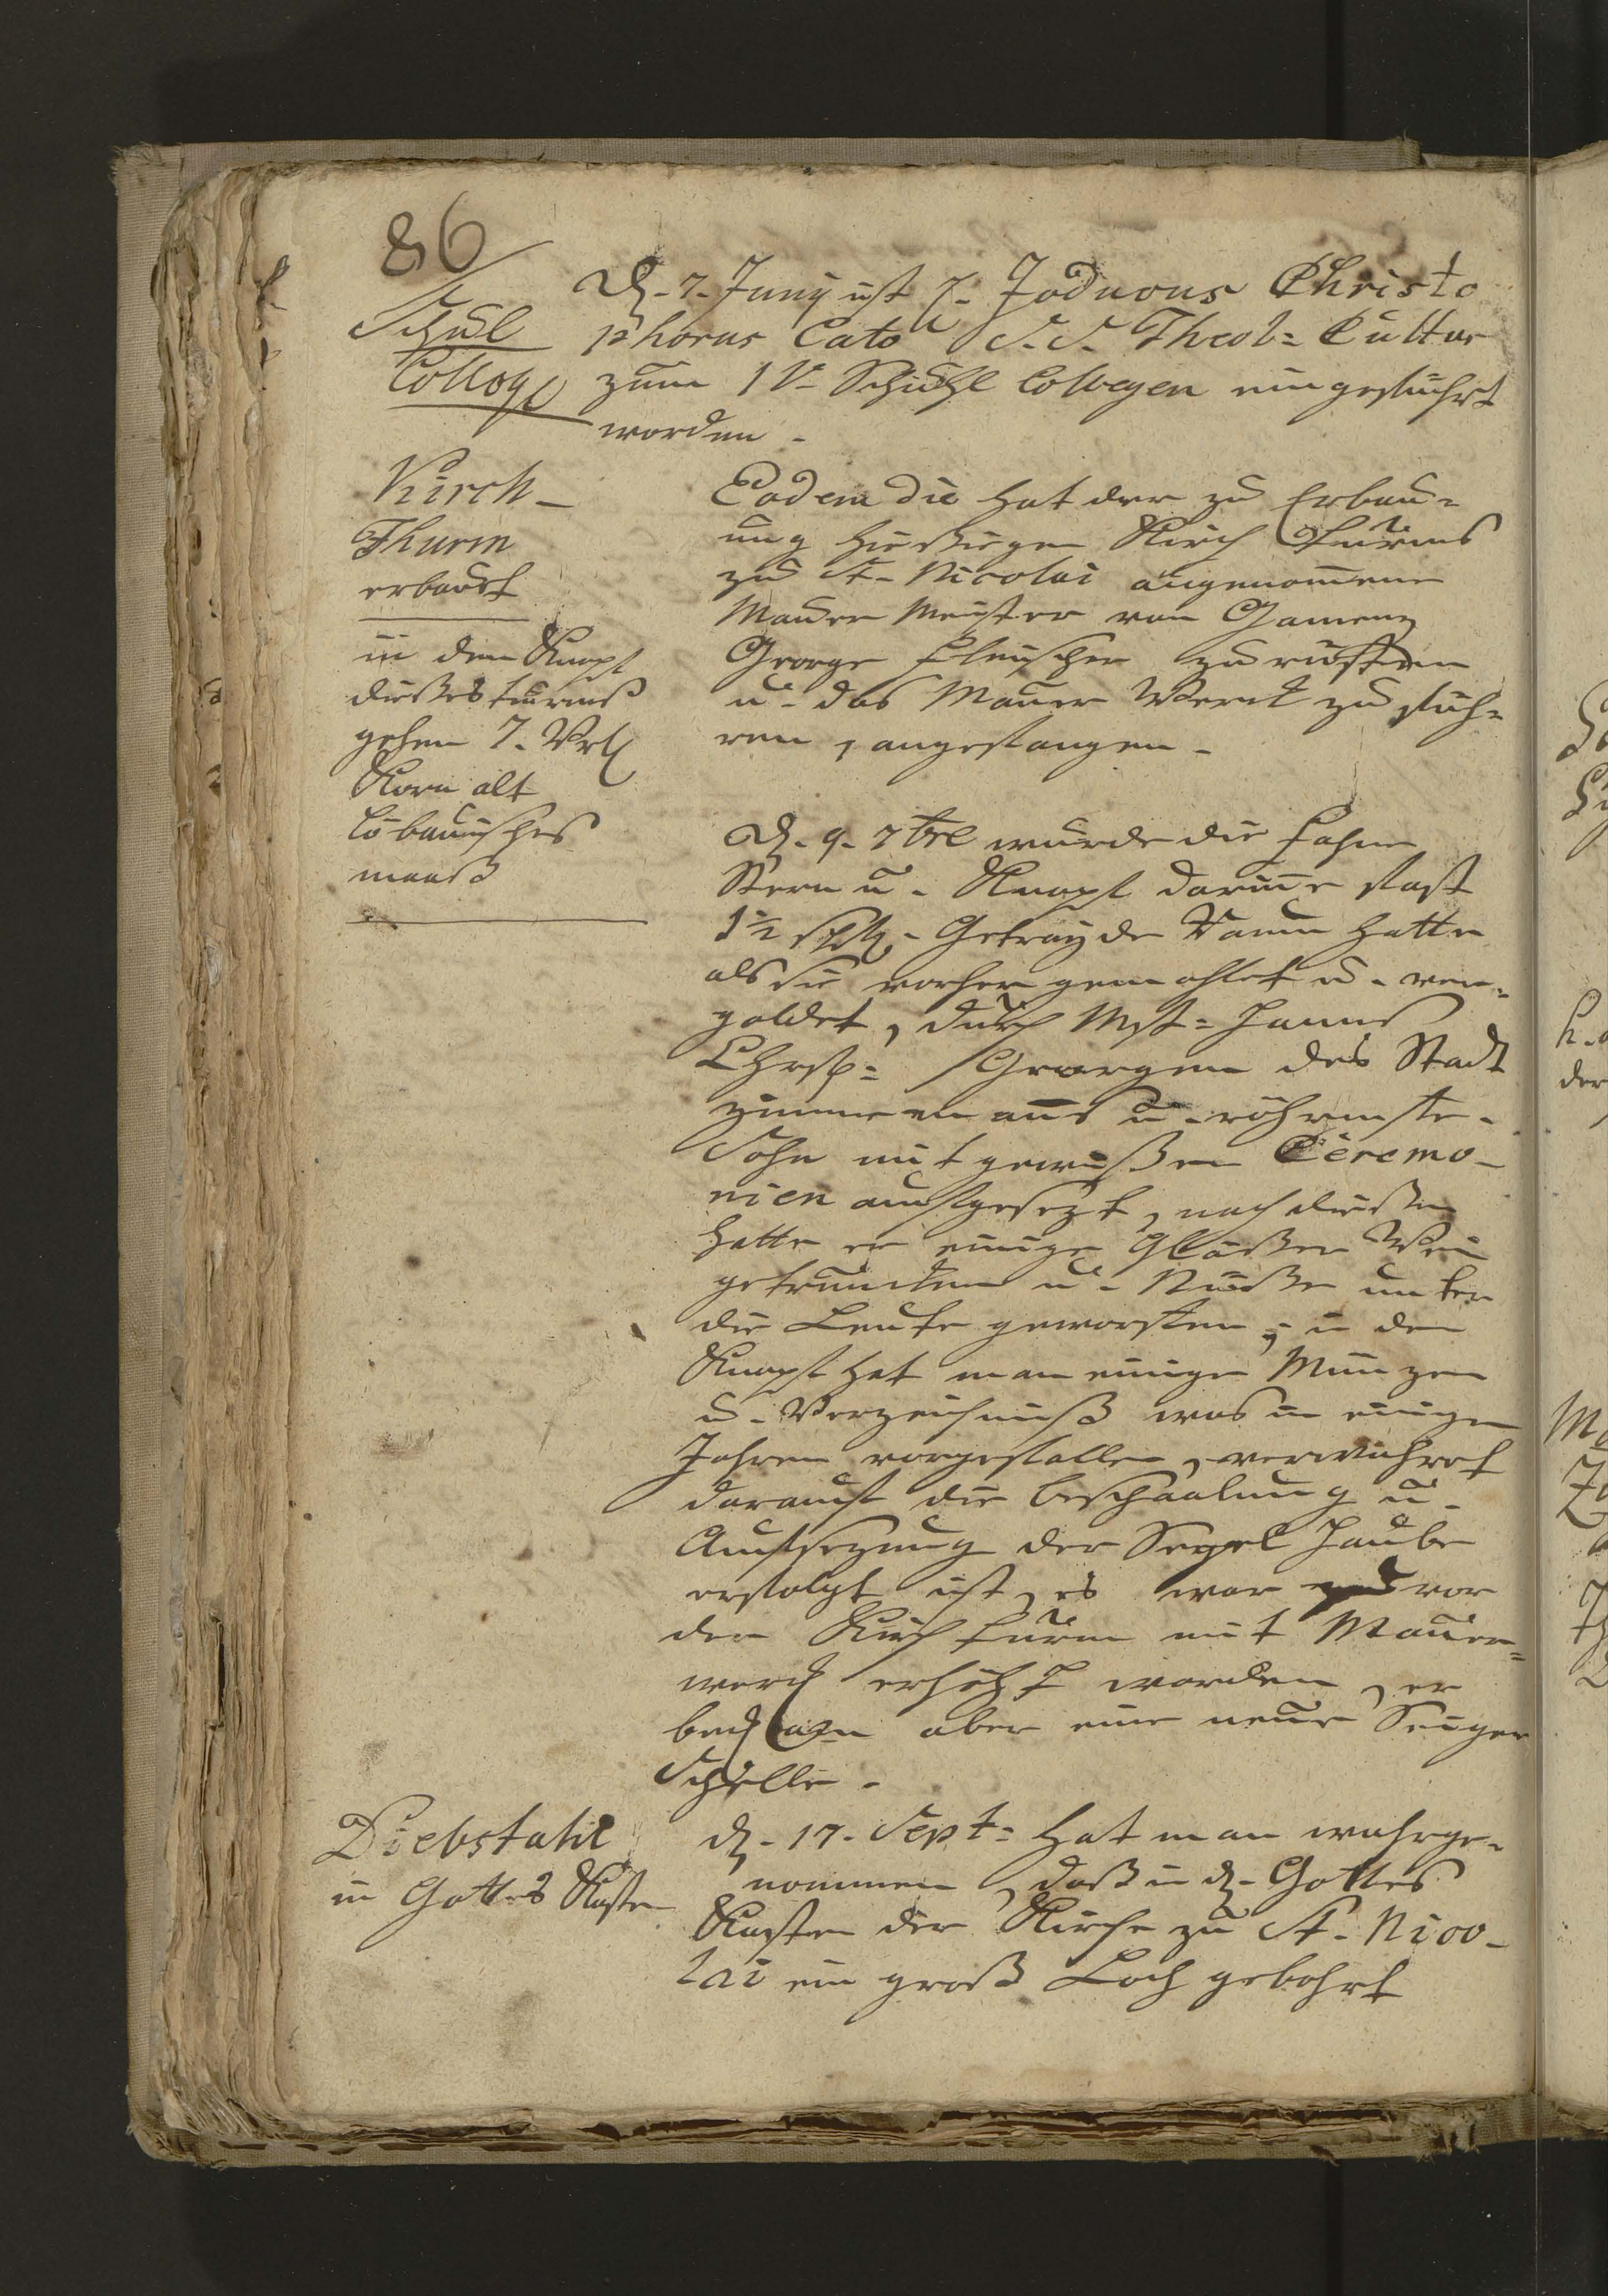 86
Schul
Colleg
D. 7. Juny ist H. Joduous Christo
phorus Cato S. S. Theol= Cultor
zum IV. Schuhl Collegen eingeführt
worden.
Kirch-
Thurm
erbaust
in dem Knopf
dießes turms
gehen 7. Vrtl
Korn alt
löbauisches
maaß
Eodem die hat der zu Erbau=
ung hießigen Kirch Turms
zu St. Nicolai angenomene
Mauer Meister von Camenz
George Fleischer zu rüsten
u. das Mauer Werck zu füh=
ren, angefangen.
D. 9. 7bre wurde die Fahne
Stern u. Knopf darinne fast
1½ Getrayde Raum hatte
als sie vorher gemahlet u. ver=
goldet, durch Mstr= Hanns
Chrsp= Georgen des Stadt
Zimmermans u. röhrmstr.
Sohn mit gewißen Ceremo-
nien aufgesezt, nach dießen
hatte er einige Gläßer Wein
getruncken u. Nüße unter
die Leute geworffen; in den
Knopf hat man einige Münzen
u. Verzeichniß was in einigen
Jahren vorgefallen, verwahret
darauf die beschaalung u.
Aufsezung der Segel Haube
erfolgt ist, es war zuvor
der Kirch turm mit Mauer=
werck erhöht worden, er
bekam aber eine neue Seiger
Schelle.
Diebstahl
in Gottes Kasten
d. 17. Sept= hat man wahrge=
nommen, daß in d. Gottes
Kasten der Kirche zu St. Nico-
lai ein groß Loch gebohrt